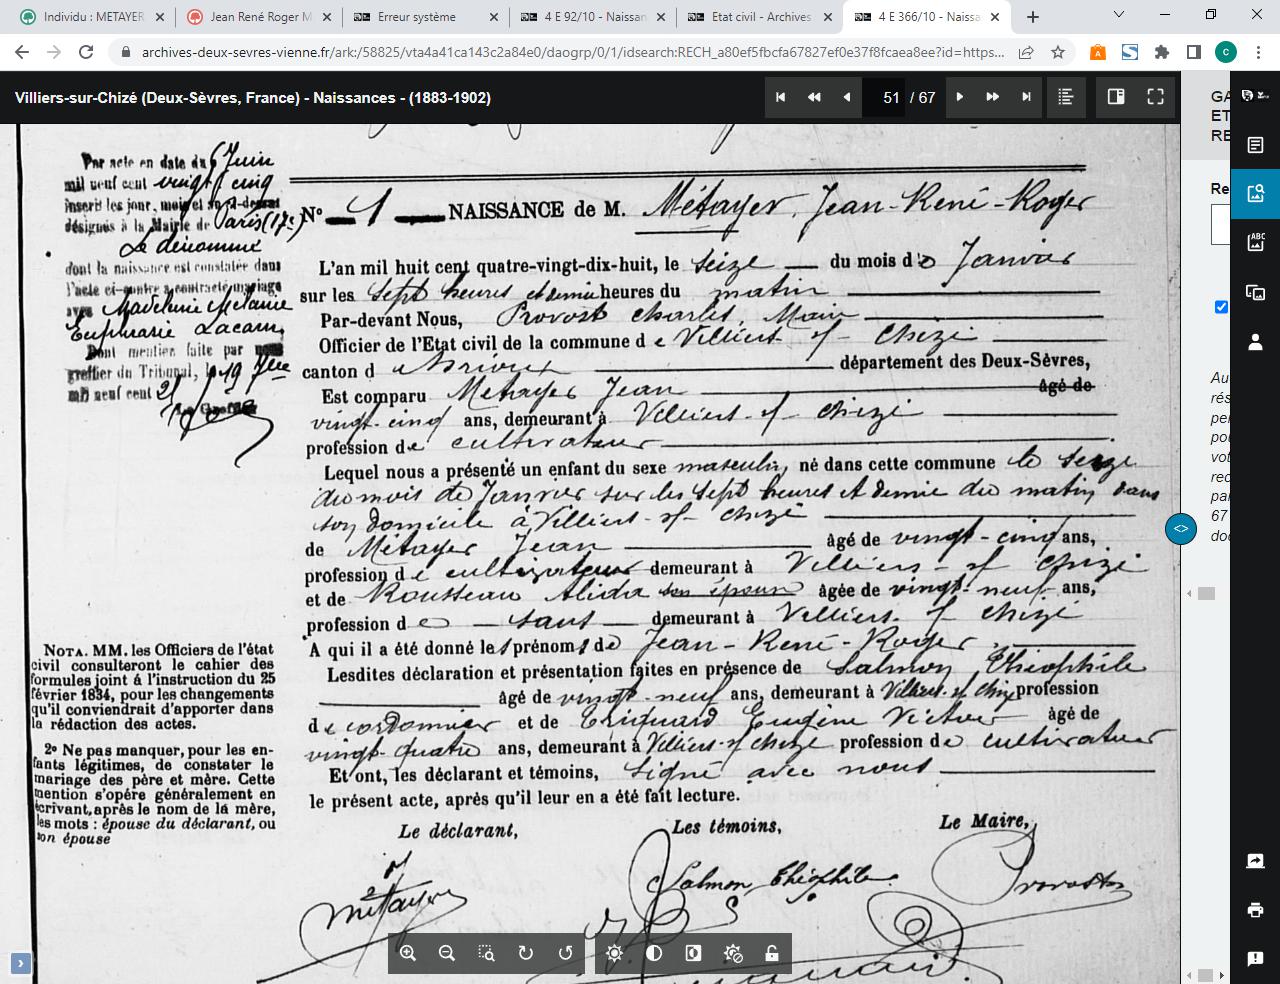 Individu : METAYER
Jean René Roger M
Erreur système
4 E 92/10 - Naissan
Etat civil - Archives
4 E 366/10 - Naissa
archives-deux-sevres-vienne.fr/ark:/58825/vta4a41ca143c2a84e0/daogrp/0/1/idsearch:RECH_a80ef5fbcfa67827ef0e37f8fcaea8ee?id=https...
Villiers-sur-Chizé (Deux-Sèvres, France) - Naissances - (1883-1902)
51 / 67
GA
ET
RE
Re
Au
rés
per
pou
vot
rec
par
67
doc
Par acte en date du 6 Juin
mil neuf cent vingt cinq
inscrit les jour, mois et an ci-dessus
désignés à la Mairie de Paris (17e)
Le dénommé
dont la naissance est constatée dans
l'acte ci-contre a contracté mariage
avec Madeleine Mélanie
Euphrasie Lacam
Dont mention faite par nous
greffier du Tribunal, le 19 7bre
mil neuf cent 25
Le Greffier
N° 1 NAISSANCE de M. Métayer, Jean-René-Roger
L'an mil huit cent quatre-vingt-dix-huit, le seize du mois de Janvier
sur les sept heures et demie heures du matin
Par-devant Nous, Provost Charles, Maire
Officier de l'Etat civil de la commune de Villiers-s/-Chizé
canton d Brioux département des Deux-Sèvres,
Est comparu Métayer Jean âgé de
vingt-cinq ans, demeurant à Villiers-s/-Chizé
profession de cultivateur
Lequel nous a présenté un enfant du sexe masculin, né dans cette commune le seize
du mois de Janvier sur les sept heures et demie du matin dans
son domicile à Villiers-s/-Chizé
de Métayer Jean âgé de vingt-cinq ans,
profession de cultivateur demeurant à Villiers-s/-Chizé
et de Rousseau Alida son épouse âgée de vingt-neuf ans,
profession de sans demeurant à Villiers-s/-Chizé
A qui il a été donné les prénoms de Jean-René-Roger
Lesdites déclaration et présentation faites en présence de Salmon Théophile
âgé de vingt-neuf ans, demeurant à Villiers-s/-Chizé profession
de cordonnier et de Eugène Victor âgé de
vingt-quatre ans, demeurant à Villiers-s/-Chizé profession de cultivateur
Et ont, les déclarant et témoins, signé avec nous
le présent acte, après qu'il leur en a été fait lecture.
Le déclarant, Les témoins, Le Maire,
Métayer
Salmon Théophile
Provost
NOTA. MM. les Officiers de l'état
civil consulteront le cahier des
formules joint à l'instruction du 25
février 1834, pour les changements
qu'il conviendrait d'apporter dans
la rédaction des actes.
2° Ne pas manquer, pour les en-
fants légitimes, de constater le
mariage des père et mère. Cette
mention s'opère généralement en
écrivant, après le nom de la mère,
les mots : épouse du déclarant, ou
son épouse